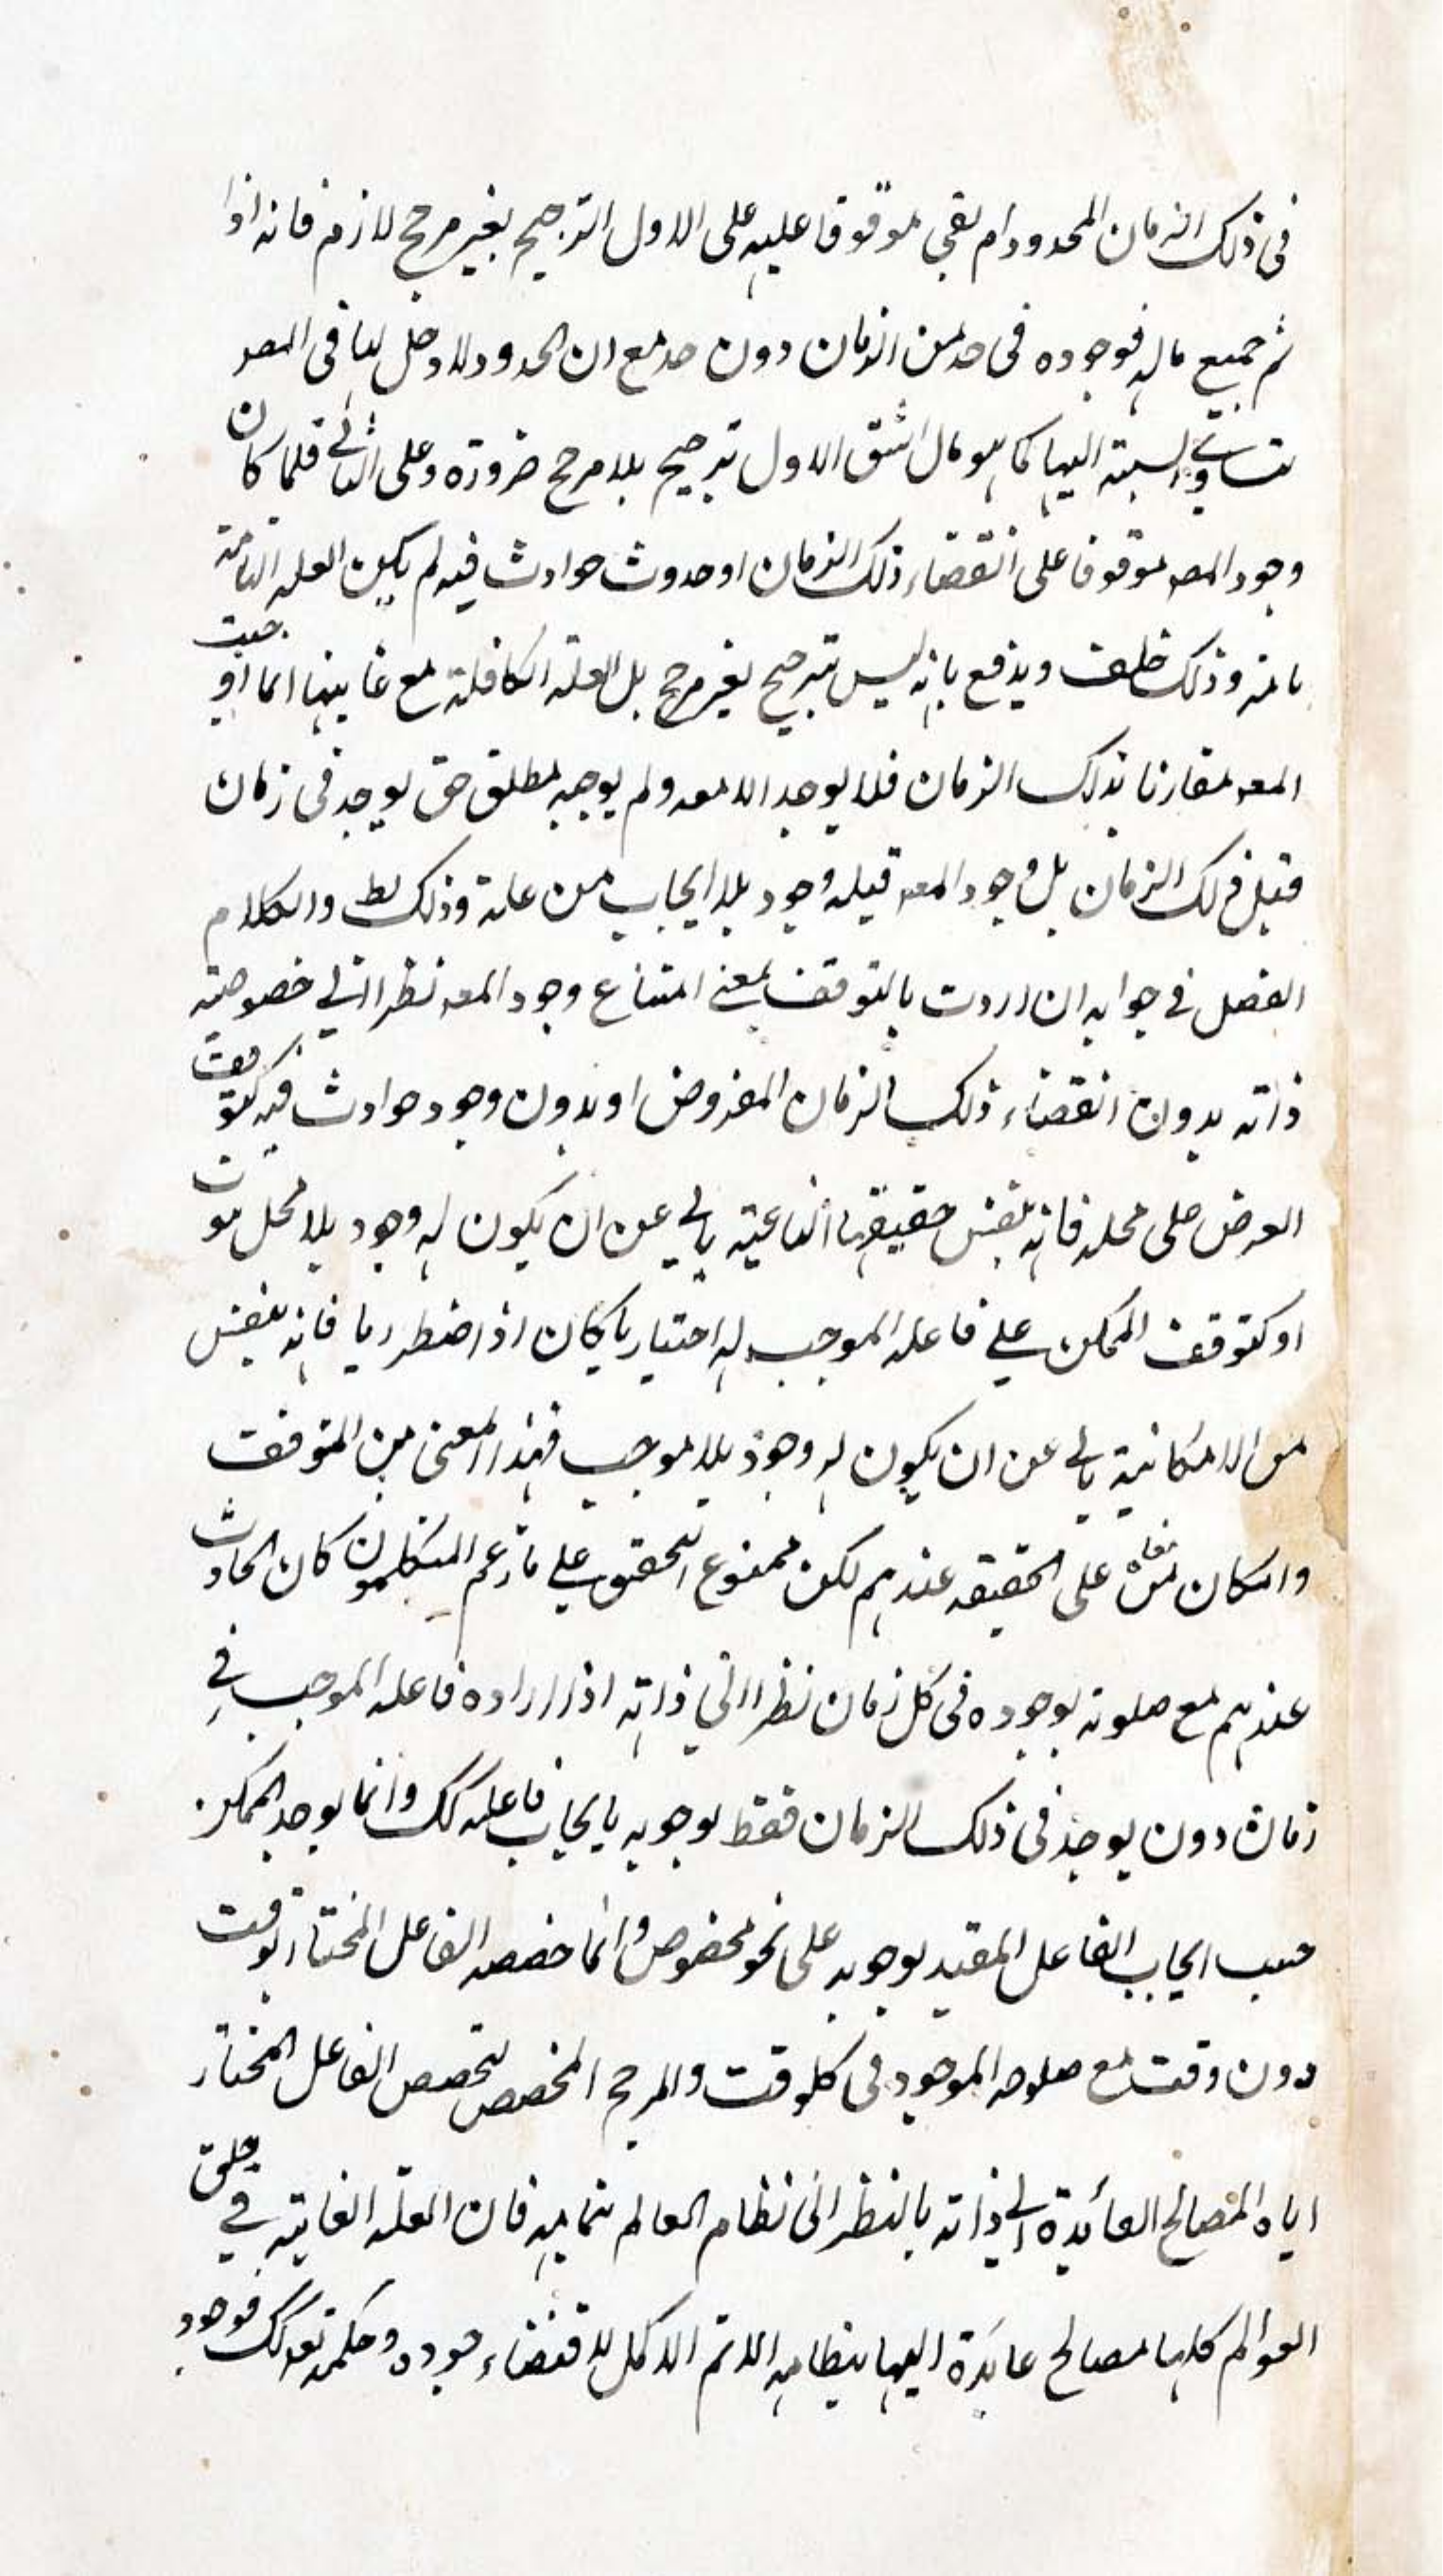 فى ذلك الزمان المحدود ام بقى موقوفا عليه على الاول الترجيح بغير مرجح لازم فانه اذا
تم جميع ماله فوجوده فى حد من الزمان دون حد مع ان الحدود لا دخل لها فى المعه
بتساوى نسبته اليها كما هو مآل الشق الاول ترجيح بلا مرجح ضرورة وعلى الثانى فلما كان
وجود المعه موقوفا على انقضاء ذلك الزمان او حدوث حوادث فيه لم يكن العلة التامة
تامة وذلك خلف ويدفع بانه ليس ترجيح بغير مرجح بل العلة الكافلة مع غاينها انما اوجبت
المعه مقارنا بذلك الزمان فلا يوجد الا معه ولم يوجبه مطلق حتى يوجد فى زمان
قبل ذلك الزمان بل وجود المعه قبله وجود بلا ايجاب من علة وذلك بط والكلام
الفصل فى جوابه ان اردت بالتوقف بمعنى امتناع وجود المعه نظرا الى خصوصية
ذاته بدون انقضاء ذلك الزمان المفروض او بدون وجود حوادث فيه كتوقف
العرض على محله فانه بنفس حقيقتها الناعتية يابى عن ان يكون له وجود بلا محل
او كتوقف الممكن على فاعله الموجب له اختياريا كان او اضطراريا فانه بنفس
الامكانية يابى عن ان يكون له وجود بلا موجب فهذا المعنى من التوقف
وان كان معناه على الحقيقه عندهم لكن ممنوع التحقق على ما زعم المتكلمون كان الحادث
عندهم مع صلوته بوجوده فى كل زمان نظرا الى ذاته اذا اراده فاعله الموجب فى
زمان دون يوجد فى ذلك الزمان فقط لوجوبه بايجاب فاعله كك وانما يوجد الممكن
حسب ايجاب الفاعل المقيد لوجوبه على نحو مخصوص وانما خصصه الفاعل المختار بوقت
دون وقت مع صلوحه الموجود فى كل وقت والمرجح المخصص لتخصص الفاعل المختار
اياه المصالح العائدة الى ذاته بالنظر الى نظام العالم بتماميه فان العلة الغاية فى خلق
العوالم كلها مصالح عائدة اليها بنظامه الاتم الاكمل لاقتضاء جوده وحكمته تعه كك فوجود